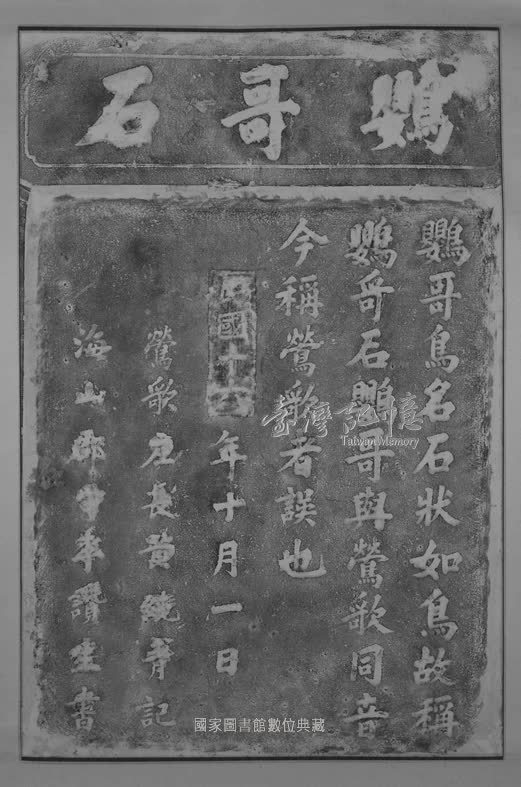 鸚哥石
鸚哥鳥名石狀如鳥故稱
鸚哥石鸚哥與鶯歌同音
今稱鶯歌者誤也
民國十六年十月一日
鶯歌庄長黃純青記
海山郡守李讚生書
臺灣記憶
Taiwan Memory
國家圖書館數位典藏